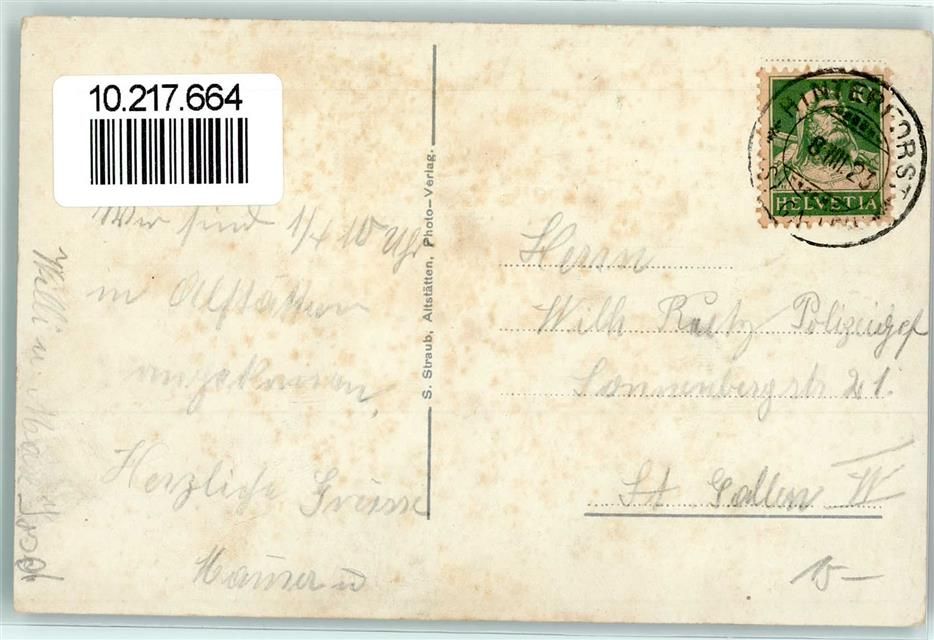 10.217.664
Wir sind 1/4 10 Uhr
in Altstätten
angekommen,
Herzliche Grüsse
Willi u.
S. Straub, Altstätten, Photo-Verlag.
HINTERFORST
HELVETIA
Herrn
Wilh Polizeigef
Sonnenbergstr 21.
St Gallen W